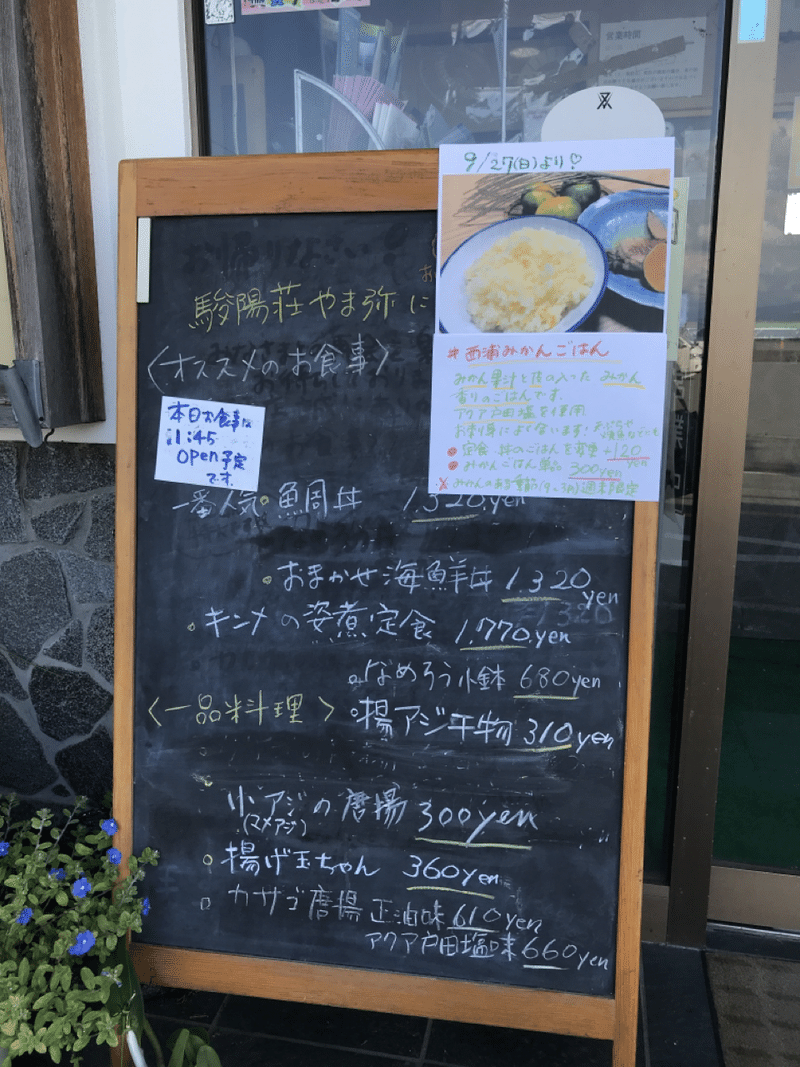 営業時間
9/27(日)より♡
駿陽荘やま弥に
〈オススメのお食事〉
#西浦みかんごはん
みかん果汁と皮の入った みかん
香りのごはんです。
アクア戸田塩を使用
お刺身によく合います!
● 定食・丼のごはんを変更 +120yen
● みかんごはん単品 300yen
※ みかんのある季節 週末限定
本日お食事は
11:45
open予定
です。
一番人気・鯛丼 1.320.yen
・おまかせ海鮮丼 1.320yen
・キンメの姿煮定食 1.770.yen
。なめろう小鉢 680yen
〈一品料理〉 。揚アジ干物 310yen
小アジの唐揚 300yen
(マメアジ)
。揚げ玉ちゃん 360yen
。カサゴ唐揚 正油味 610yen
アクア戸田塩味 660yen